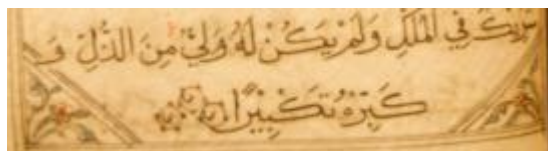 شَرِيكٌ فِي الْمُلْكِ وَلَمْ يَكُنْ لَهُ وَلِيٌّ مِنَ الذُّلِّ وَ
كَبِّرْهُ تَكْبِيْرًا